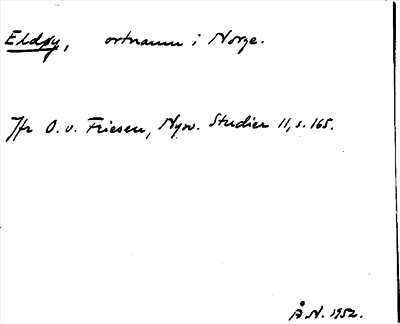 Eldøy, ortnamn i Norge.
Jfr O. v. Friesen, Nysv. Studier 11, s. 165.
Å. N. 1952.